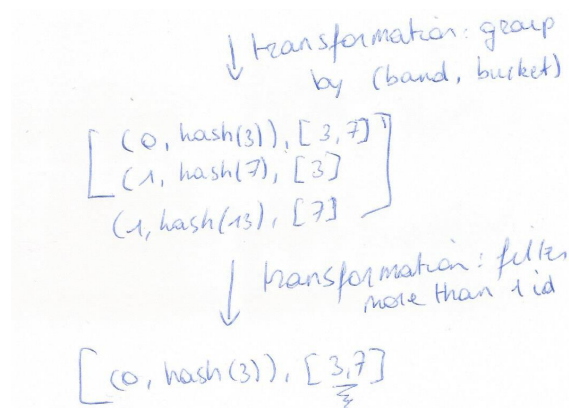 transformation: group
by (band, bucket)
(0, hash(3)), [3,7]
(1, hash(7), [3]
(1, hash(13), [7]
transformation: filter
more than 1 id
[(0, hash(3)), [3,7]